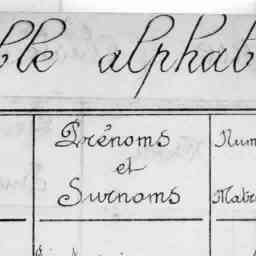 ble alphab
Prénoms
et
Surnoms
Num
Matr